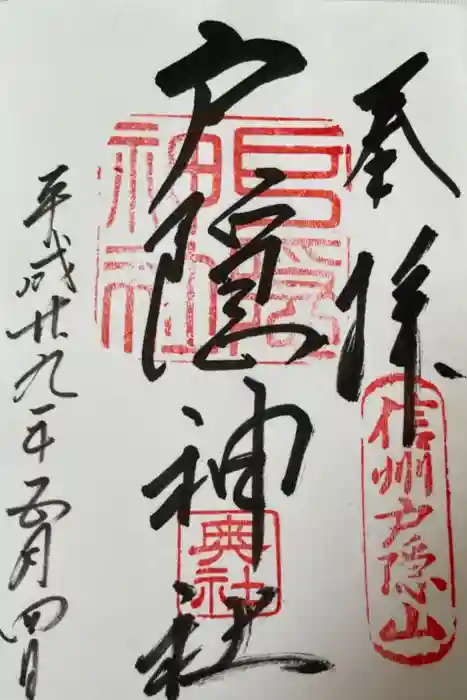 奉拝
信州戸隠山
戸隠神社
戸隠神社
奥社
平成廿九年五月四日